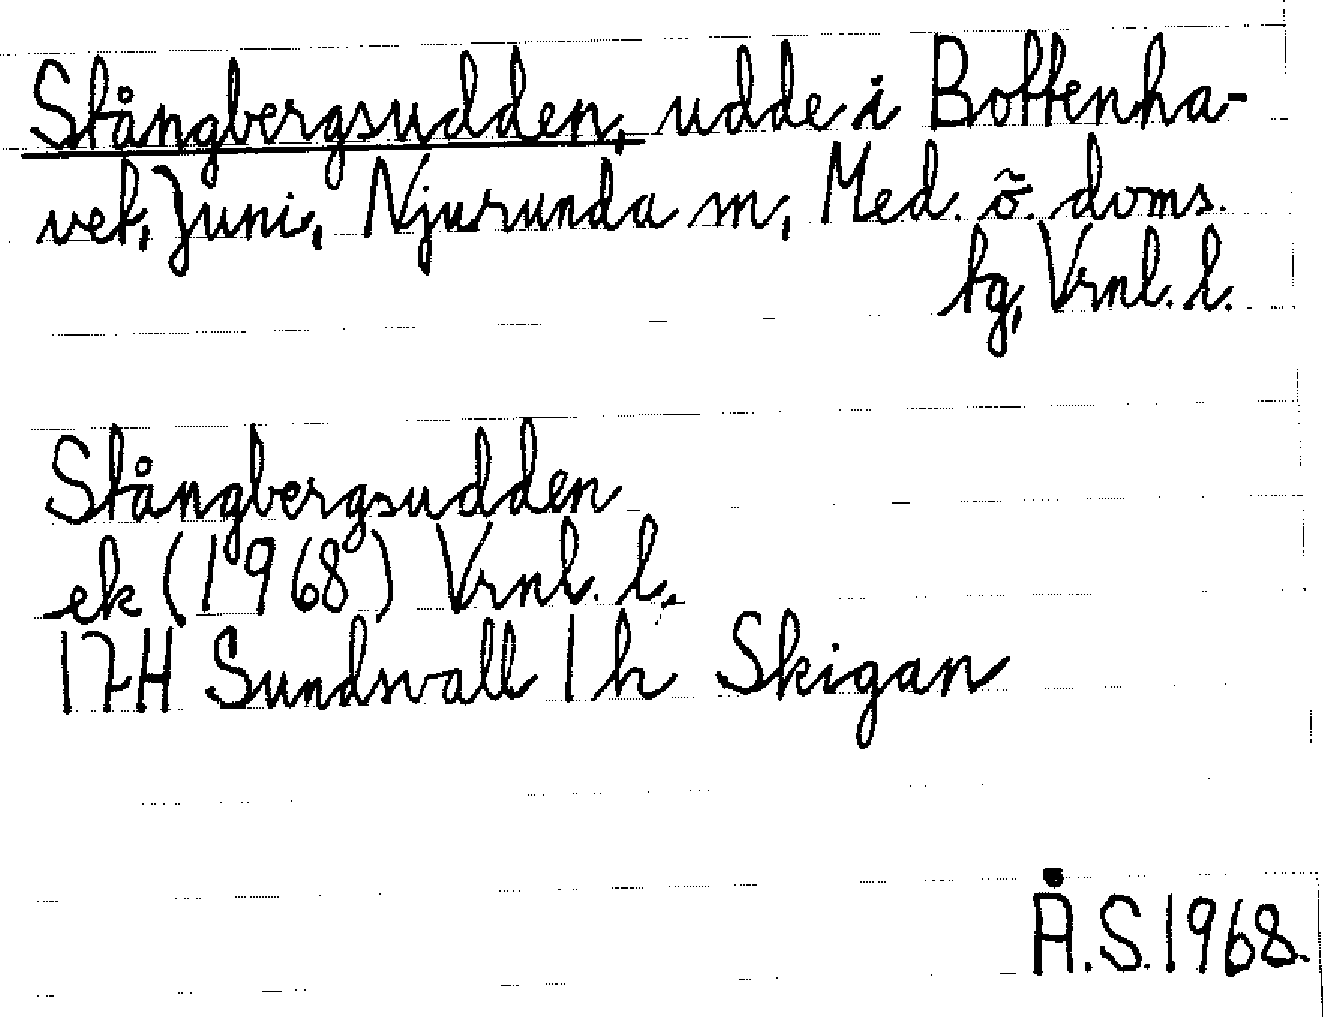 Stångbergsudden, udde i Bottenha-
vet, Juni, Njurunda sn, Med. ö. doms.
tg, Vrnl. l.
Stångbergsudden
ek (1968) Vrnl. l.
17H Sundsvall 1 h Skigan
Å.S.1968.